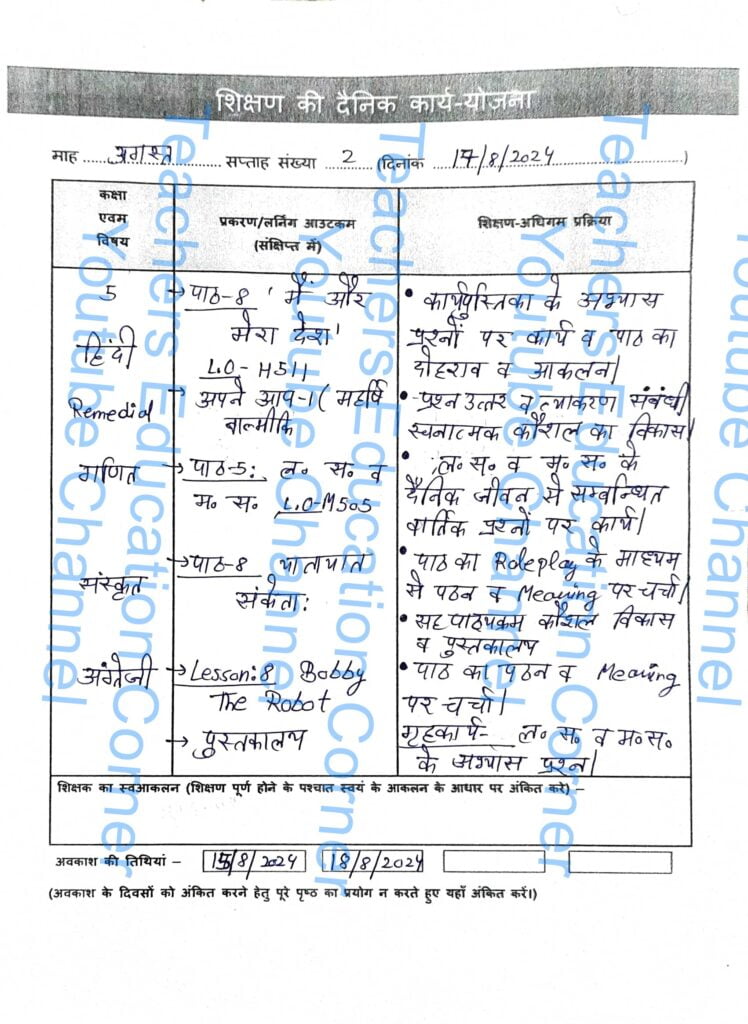 शिक्षण की दैनिक कार्य-योजना
माह ..... अगस्त ..... सप्ताह संख्या .. 2 .. (दिनांक ... 17/8/2024 ...)
कक्षा
एवम
विषय
प्रकरण/लर्निंग आउटकम
(संक्षिप्त में)
शिक्षण-अधिगम प्रक्रिया
5
हिंदी
Remedial
गणित
संस्कृत
अंग्रेजी
→ पाठ-8 ' मैं और
मेरा देश'
L.O- H511
→ अपने आप-1 ( महर्षि
बाल्मीकि
→ पाठ-5: ल. स. व
म. स. L.O-M505
→ पाठ-8 यातायात
संकेता:
→ Lesson:8 Bobby
The Robot
→ पुस्तकालय
• कार्यपुस्तिका के अभ्यास
प्रश्नों पर कार्य व पाठ का
दोहराव व आकलन।
• प्रश्न उत्तर व व्याकरण संबंधी
रचनात्मक कौशल का विकास।
• ल. स. व म. स. के
दैनिक जीवन से सम्बन्धित
वार्तिक प्रश्नों पर कार्य।
• पाठ का Roleplay के माध्यम
से पठन व Meaning पर चर्चा।
• सह पाठ्यक्रम कौशल विकास
व पुस्तकालय
• पाठ का पठन व Meaning
पर चर्चा।
गृहकार्य- ल. स. व म. स.
के अभ्यास प्रश्न।
शिक्षक का स्वआकलन (शिक्षण पूर्ण होने के पश्चात स्वयं के आकलन के आधार पर अंकित करे) –
अवकाश की तिथियां – 15/8/2024 18/8/2024
(अवकाश के दिवसों को अंकित करने हेतु पूरे पृष्ठ का प्रयोग न करते हुए यहाँ अंकित करें।)
Teachers Education Corner
Youtube Channel
Teachers Education Corner
Youtube Channel
Teachers Education Corner
Youtube Channel